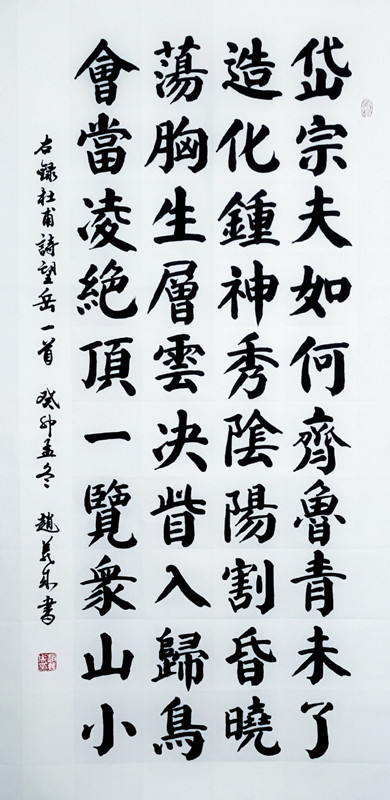 岱宗夫如何齊魯青未了
造化鍾神秀陰陽割昏曉
蕩胸生層雲决眥入歸鳥
會當凌絶頂一覽衆山小
右錄杜甫詩望岳一首 癸卯孟冬 趙書